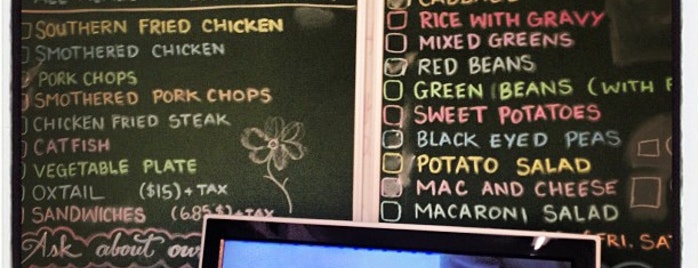 SOUTHERN FRIED CHICKEN
SMOTHERED CHICKEN
PORK CHOPS
SMOTHERED PORK CHOPS
CHICKEN FRIED STEAK
CATFISH
VEGETABLE PLATE
OXTAIL ($15)+TAX
SANDWICHES (6.85$+TAX
Ask about our
CABBAGE
RICE WITH GRAVY
MIXED GREENS
RED BEANS
GREEN BEANS (WITH
SWEET POTATOES
BLACK EYED PEAS
POTATO SALAD
MAC AND CHEESE
MACARONI SALAD
(FRI. SAT